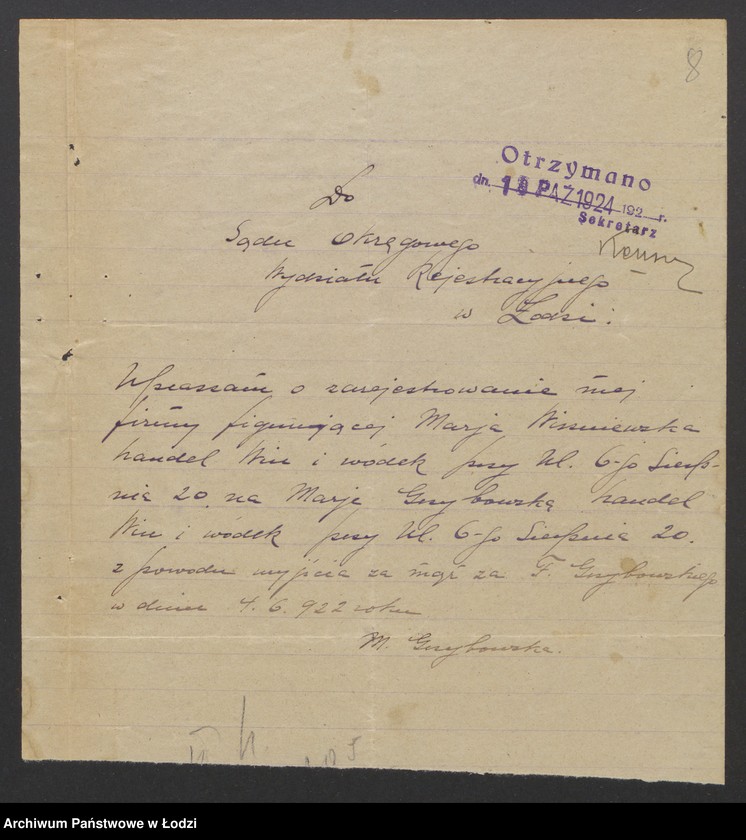 8
Otrzymano
dn. PAŹ 1924 192 r.
Sekretarz
Do
Sądu Okręgowego
Wydziału Rejestracyjnego
w Łodzi.
Upraszam o zarejestrowanie mej
firmy figurującej Marja Wiśniewska
handel Win i wódek przy Ul. 6-go Sierp-
nia 20 na Marję Grzybowską handel
Win i wódek przy Ul. 6-go Sierpnia 20.
z powodu wyjścia za mąż za F. Grzybowskiego
w dniu 4.6.922 roku
M. Grzybowska.
Archiwum Państwowe w Łodzi